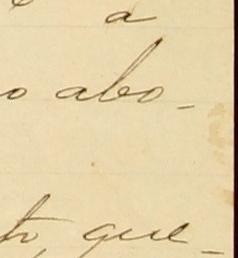 a
o abo-
to que-